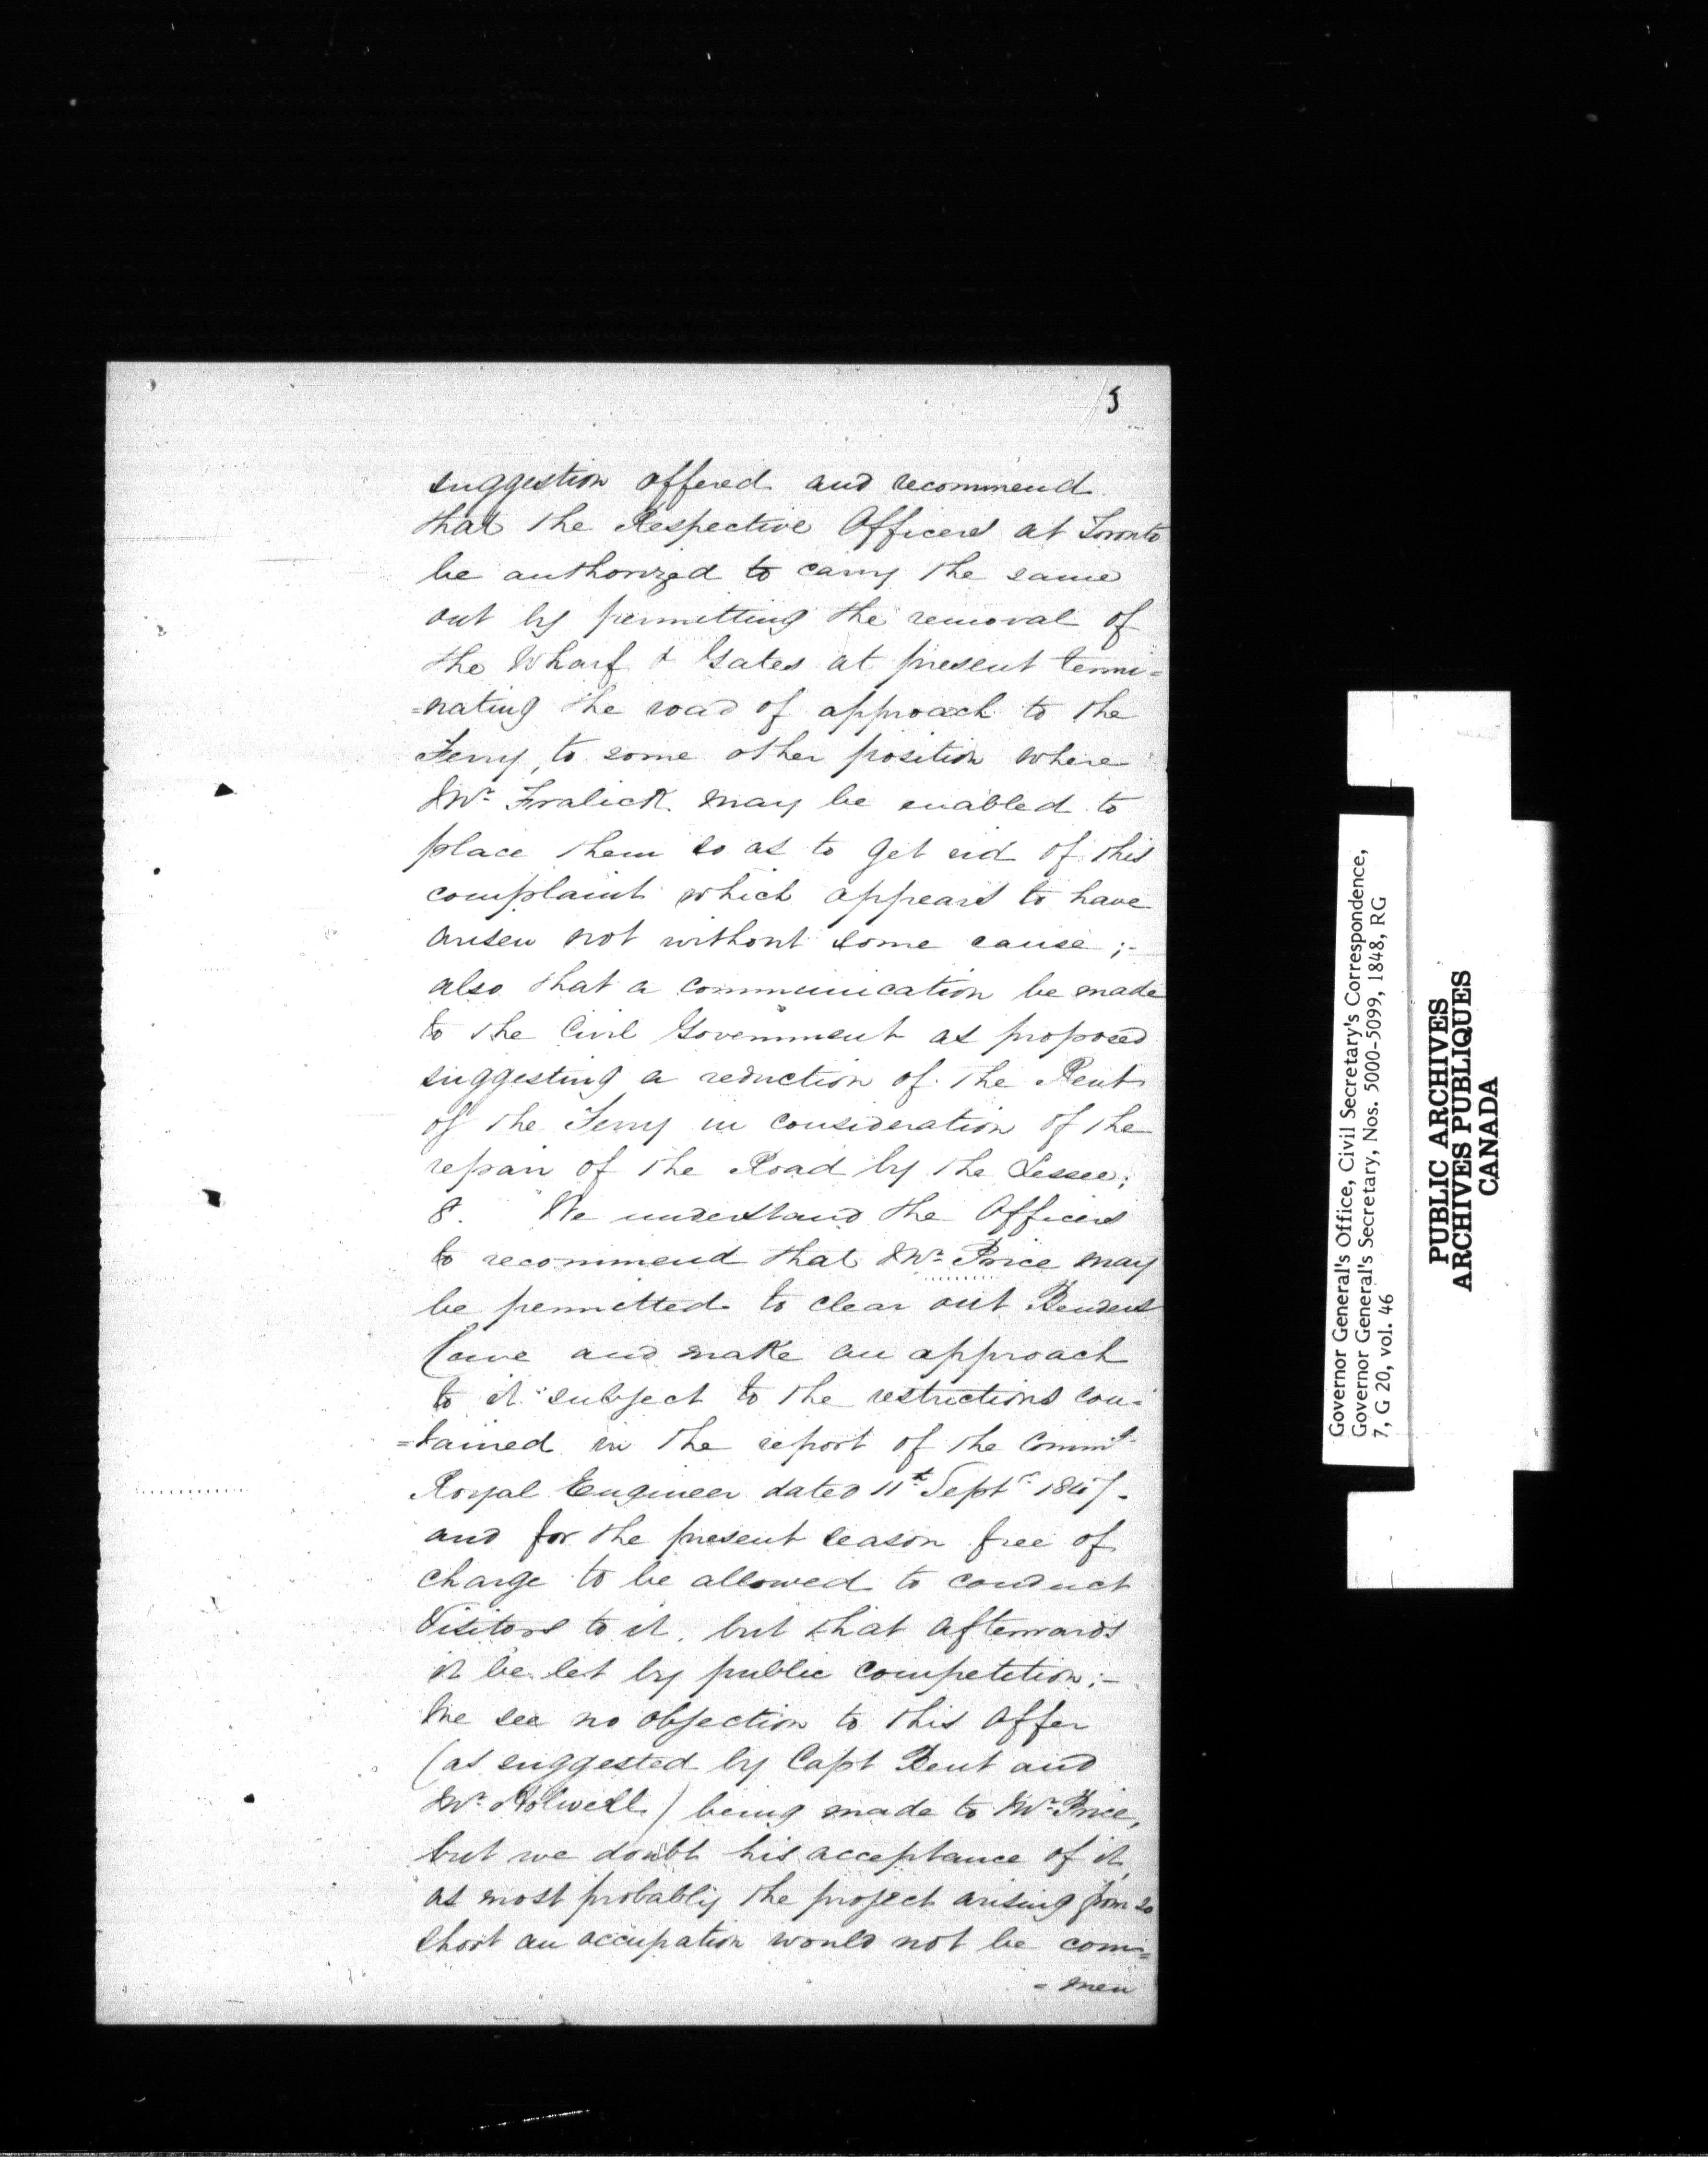 5
suggestion offered and recommend
that the Respective Officers at Toronto
be authorized to carry the same
out by permitting the removal of
the Wharf & Gates at present termi=
=nating the road of approach to the
Ferry, to some other position where
Mr. Fralick may be enabled to
place them so as to get rid of this
complaint which appears to have
arisen not without some cause ;-
also that a communication be made
to the Civil Government as proposed
suggesting a reduction of the Rent
of the Ferry in consideration of the
repair of the Road by the Lessee;
8. We understand the Officers
to recommend that Mr. Price may
be permitted to clear out Benders
Cave and make an approach
to it subject to the restrictions con=
=tained in the report of the Commg.
Royal Engineer dated 11th Septr. 1847-
and for the present season free of
charge to be allowed to conduct
Visitors to it, but that afterwards
it be let by public competition ;-
We see no objection to this offer
(as suggested by Capt Bent and
Mr. Holwell) being made to Mr. Price,
but we doubt his acceptance of it,
as most probably the project arising from so
short an occupation would not be com=
= men
Governor General's Office, Civil Secretary's Correspondence,
Governor General's Secretary, Nos. 5000-5099, 1848, RG
7, G 20, vol. 46
PUBLIC ARCHIVES
ARCHIVES PUBLIQUES
CANADA